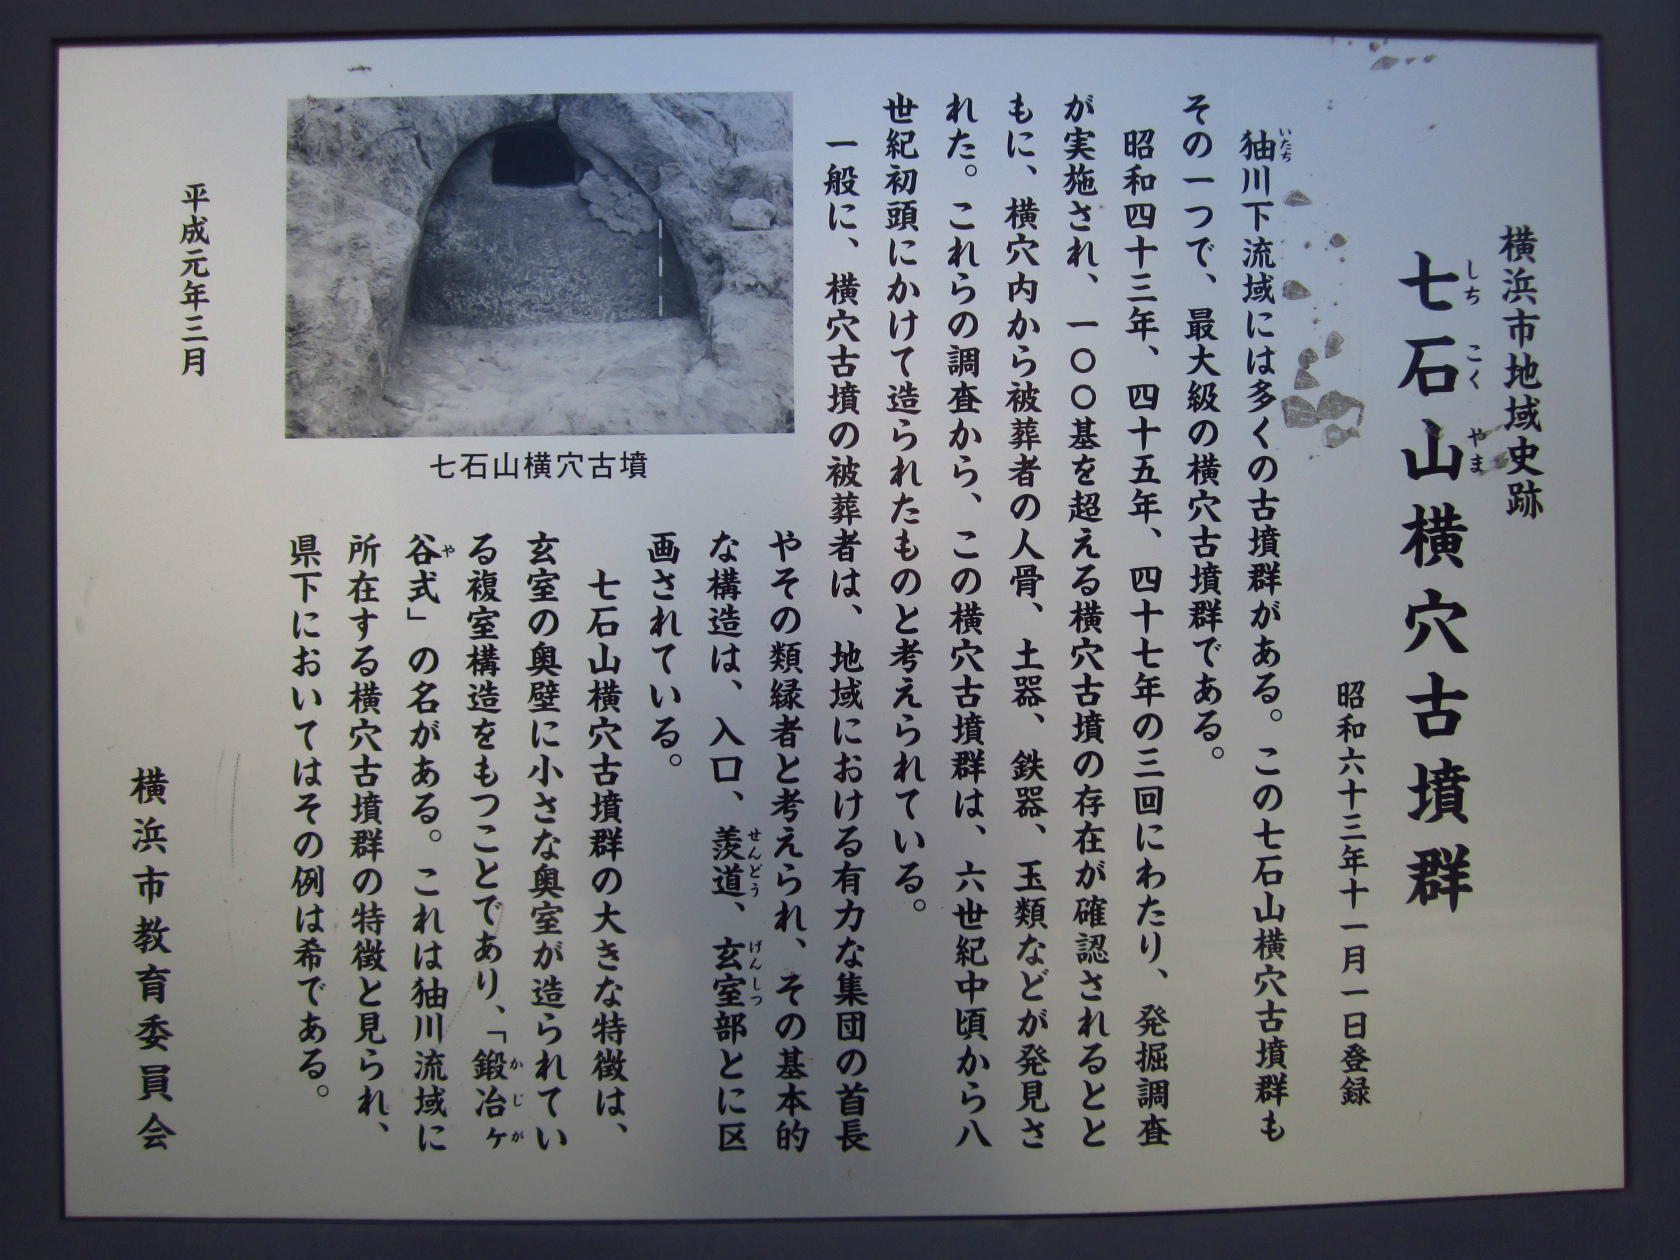 横浜市地域史跡
七石山横穴古墳群
しちこくやま
昭和六十三年十一月一日登録
㹨川下流域には多くの古墳群がある。この七石山横穴古墳群も
いたち
その一つで、最大級の横穴古墳群である。
昭和四十三年、四十五年、四十七年の三回にわたり、発掘調査
が実施され、一〇〇基を超える横穴古墳の存在が確認されるとと
もに、横穴内から被葬者の人骨、土器、鉄器、玉類などが発見さ
れた。これらの調査から、この横穴古墳群は、六世紀中頃から八
世紀初頭にかけて造られたものと考えられている。
一般に、横穴古墳の被葬者は、地域における有力な集団の首長
やその類縁者と考えられ、その基本的
な構造は、入口、羨道、玄室部とに区
せんどう
げんしつ
画されている。
七石山横穴古墳群の大きな特徴は、
玄室の奥壁に小さな奥室が造られてい
る複室構造をもつことであり、「鍛冶ヶ
かじが
谷式」の名がある。これは㹨川流域に
や
所在する横穴古墳群の特徴と見られ、
県下においてはその例は希である。
七石山横穴古墳
平成元年三月
横浜市教育委員会